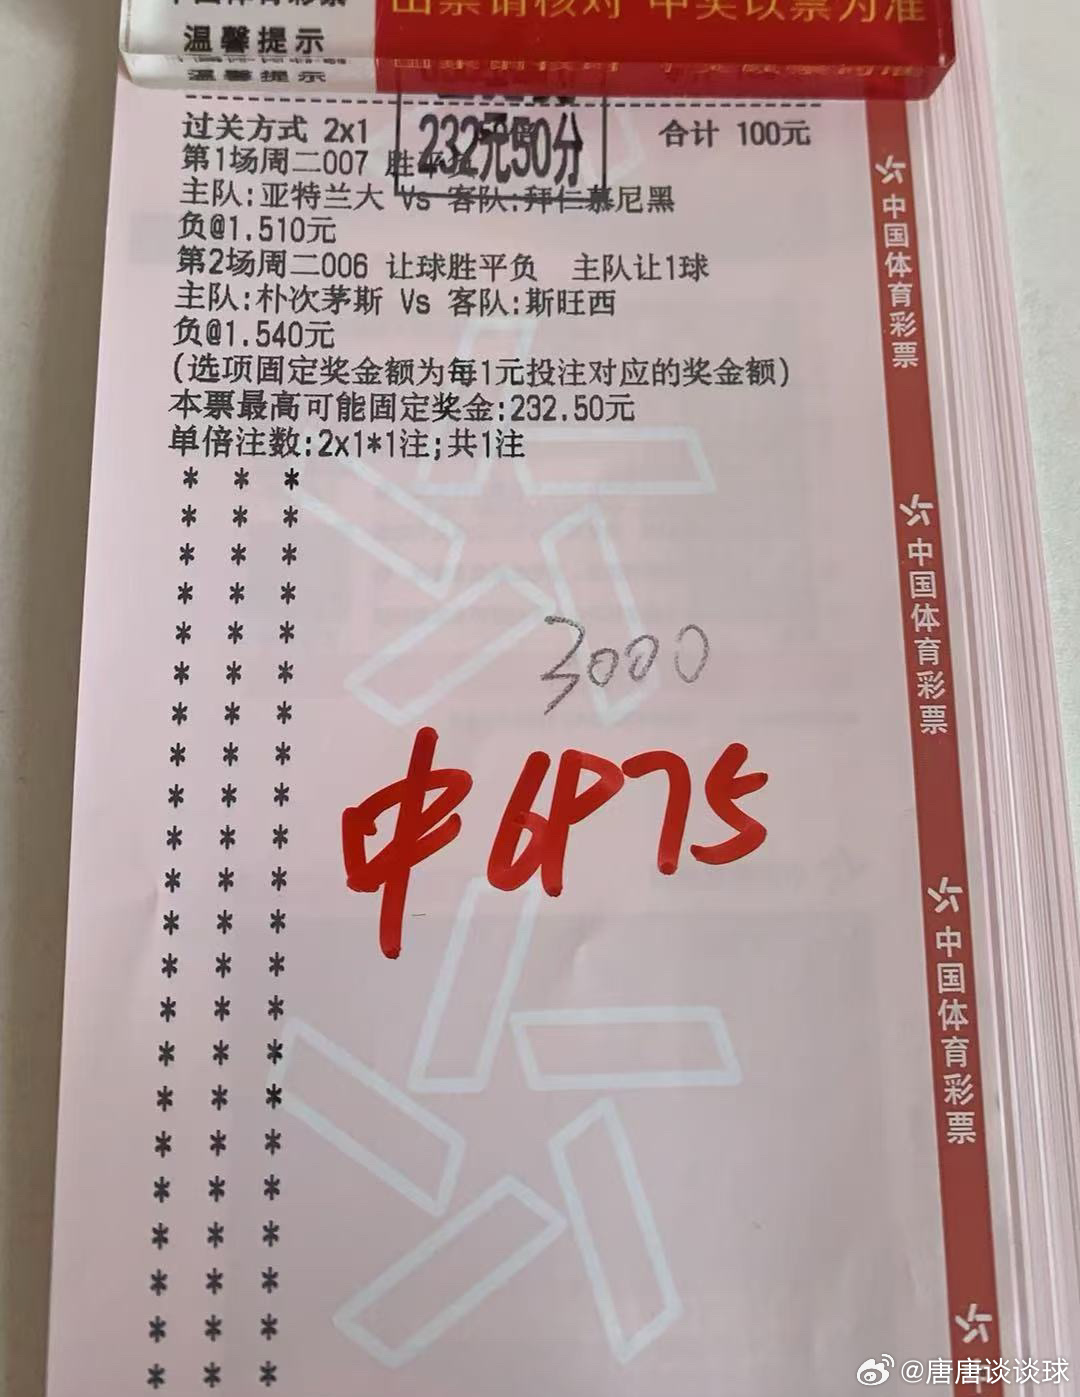 中国体育彩票 出票请核对 中奖以票为准
温馨提示
过关方式 2x1 232元50分 合计 100元
第1场周二007 胜平负
主队:亚特兰大 Vs 客队:拜仁慕尼黑
负@1.510元
第2场周二006 让球胜平负 主队让1球
主队:朴次茅斯 Vs 客队:斯旺西
负@1.540元
(选项固定奖金额为每1元投注对应的奖金额)
本票最高可能固定奖金:232.50元
单倍注数:2x1*1注;共1注
* * *
* * *
* * *
* * *
* * *
* * *
* * *
* * *
* * *
* * *
* * *
* * *
* * *
* * *
* * *
* * *
* * *
* * *
* * *
* * *
* * *
* * *
3000
中6975
中国体育彩票
中国体育彩票
中国体育彩票
中
@唐唐谈谈球